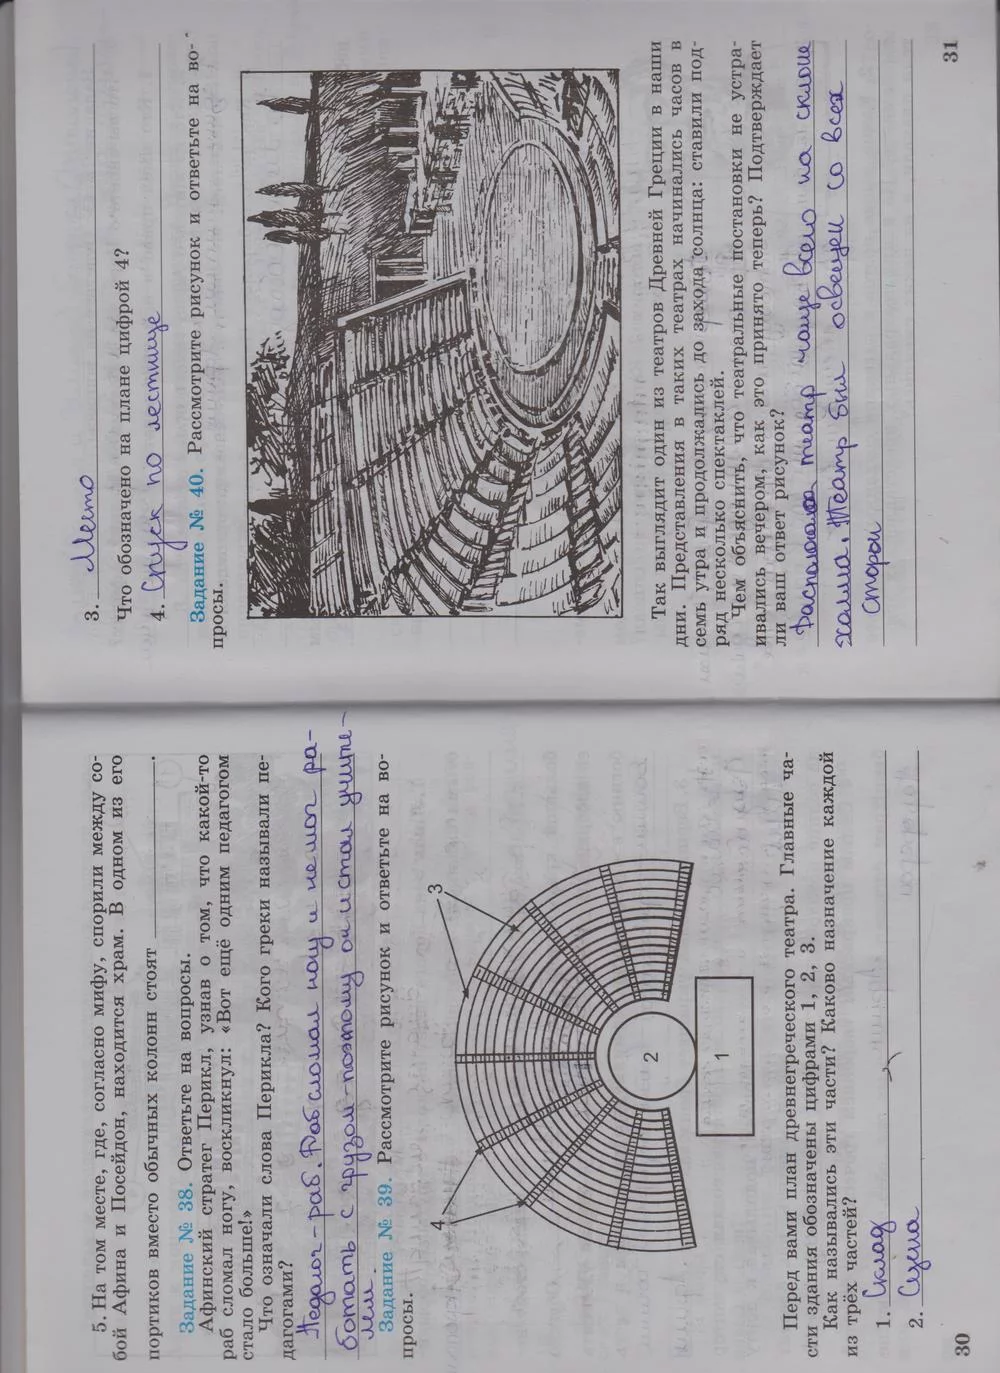 5. На том месте, где, согласно мифу, спорили между со-
бой Афина и Посейдон, находится храм. В одном из его
портиков вместо обычных колонн стоят .
Задание № 38. Ответьте на вопросы.
Афинский стратег Перикл, узнав о том, что какой-то
раб сломал ногу, воскликнул: «Вот ещё одним педагогом
стало больше!»
Что означали слова Перикла? Кого греки называли пе-
дагогами?
Педагог - раб. Раб сломал ногу и не мог ра-
ботать с грузом - поэтому он и стал учите-
лем.
Задание № 39. Рассмотрите рисунок и ответьте на во-
просы.
3
4
2
1
Перед вами план древнегреческого театра. Главные ча-
сти здания обозначены цифрами 1, 2, 3.
Как назывались эти части? Каково назначение каждой
из трёх частей?
1. Склад
2. Сцена
30
3. Место
Что обозначено на плане цифрой 4?
4. Спуск по лестнице
Задание № 40. Рассмотрите рисунок и ответьте на во-
просы.
Так выглядит один из театров Древней Греции в наши
дни. Представления в таких театрах начинались часов в
семь утра и продолжались до захода солнца: ставили под-
ряд несколько спектаклей.
Чем объяснить, что театральные постановки не устра-
ивались вечером, как это принято теперь? Подтверждает
ли ваш ответ рисунок?
театр чаще всего на склоне
холма. Театр был освещен со всех
сторон
31